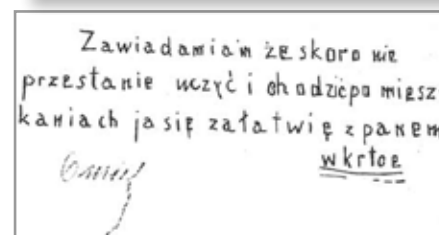 Zawiadamiam że skoro nie
przestanie uczyć i chodzićpo miesz
kaniach ja się załatwię z panem
wkrtoe